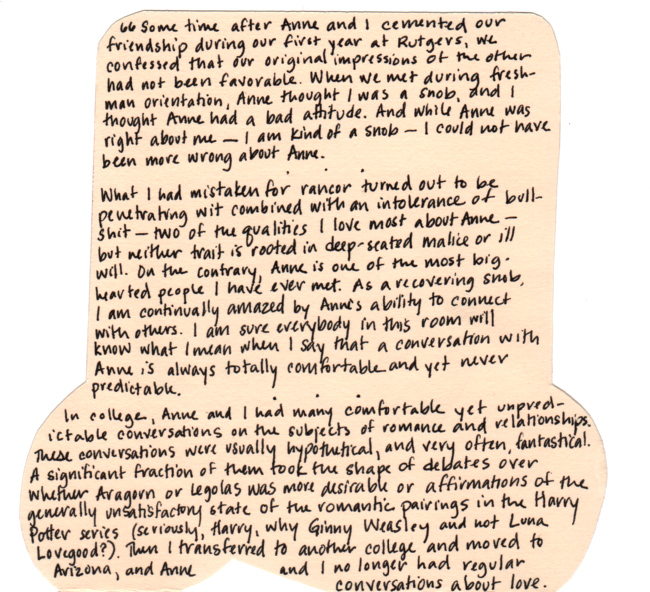 “Some time after Anne and I cemented our
friendship during our first year at Rutgers, we
confessed that our original impressions of the other
had not been favorable. When we met during fresh-
man orientation, Anne thought I was a snob, and I
thought Anne had a bad attitude. And while Anne was
right about me — I am kind of a snob — I could not have
been more wrong about Anne.
What I had mistaken for rancor turned out to be
penetrating wit combined with an intolerance of bull-
shit — two of the qualities I love most about Anne —
but neither trait is rooted in deep-seated malice or ill
will. On the contrary, Anne is one of the most big-
hearted people I have ever met. As a recovering snob,
I am continually amazed by Anne's ability to connect
with others. I am sure everybody in this room will
know what I mean when I say that a conversation with
Anne is always totally comfortable and yet never
predictable.
In college, Anne and I had many comfortable yet unpred-
ictable conversations on the subjects of romance and relationships.
These conversations were usually hypothetical, and very often, fantastical.
A significant fraction of them took the shape of debates over
whether Aragorn or Legolas was more desirable or affirmations of the
generally unsatisfactory state of the romantic pairings in the Harry
Potter series (seriously, Harry, why Ginny Weasley and not Luna
Lovegood?). Then I transferred to another college and moved to
Arizona, and Anne and I no longer had regular
conversations about love.